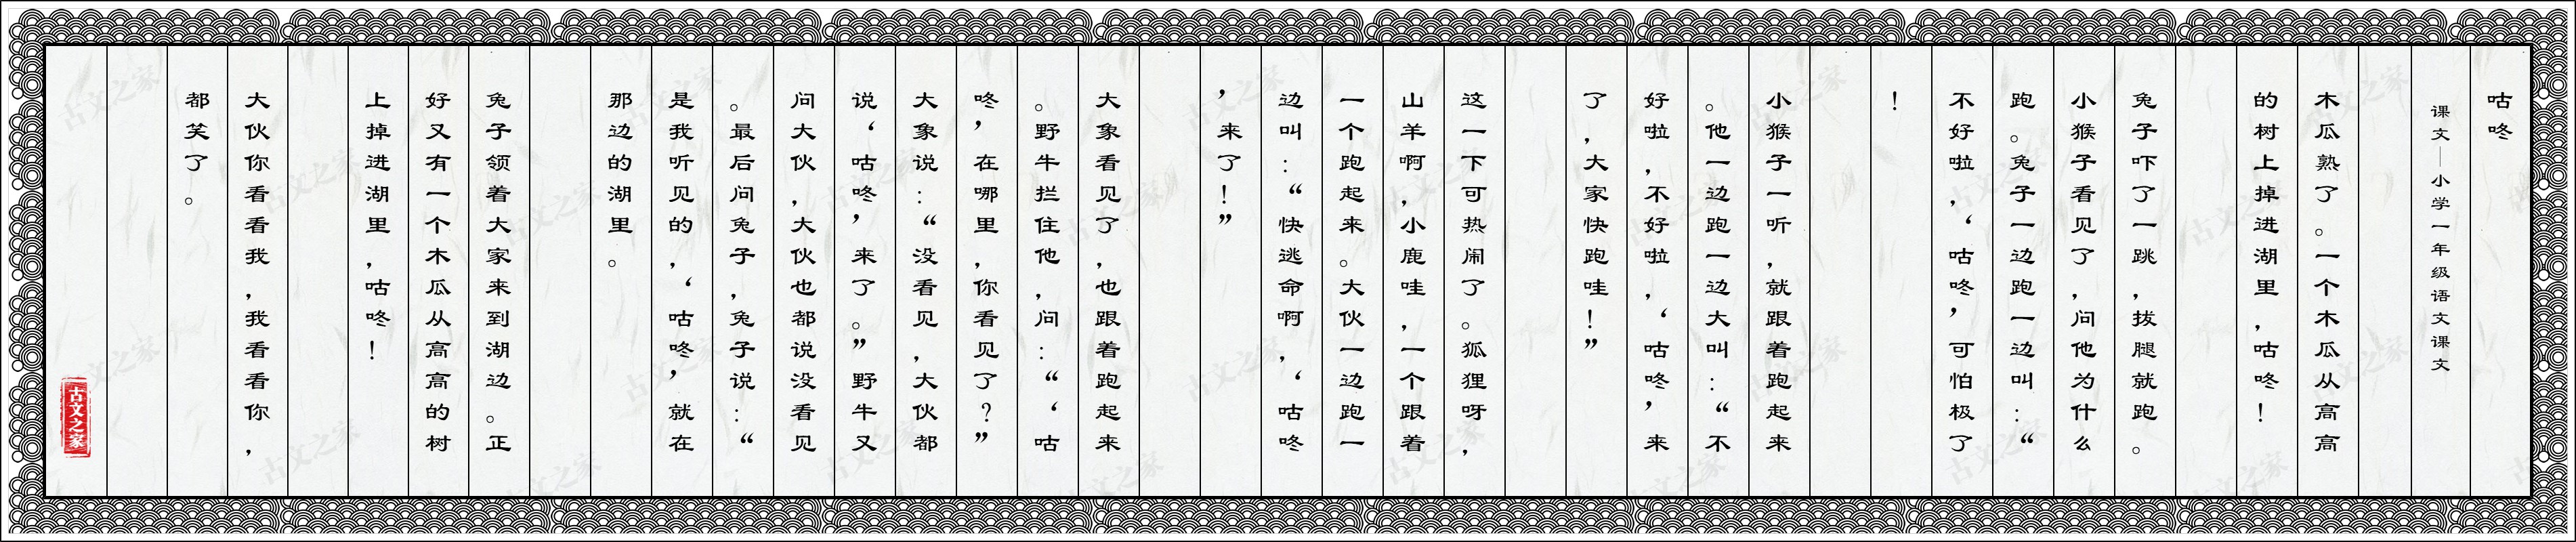 咕咚
课文—小学一年级语文课文
木瓜熟了。一个木瓜从高高
的树上掉进湖里，咕咚！
兔子吓了一跳，拔腿就跑。
小猴子看见了，问他为什么
跑。兔子一边跑一边叫：“
不好啦，‘咕咚’可怕极了
！
小猴子一听，就跟着跑起来
。他一边跑一边大叫：“不
好啦，不好啦，‘咕咚’来
了，大家快跑哇！”
这一下可热闹了。狐狸呀，
山羊啊，小鹿哇，一个跟着
一个跑起来。大伙一边跑一
边叫：“快逃命啊，‘咕咚
’来了！”
大象看见了，也跟着跑起来
。野牛拦住他，问：“‘咕
咚’在哪里，你看见了？”
大象说：“没看见，大伙都
说‘咕咚’来了。”野牛又
问大伙，大伙也都说没看见
。最后问兔子，兔子说：“
是我听见的，‘咕咚’就在
那边的湖里。
兔子领着大家来到湖边。正
好又有一个木瓜从高高的树
上掉进湖里，咕咚！
大伙你看看我，我看看你，
都笑了。
古文之家